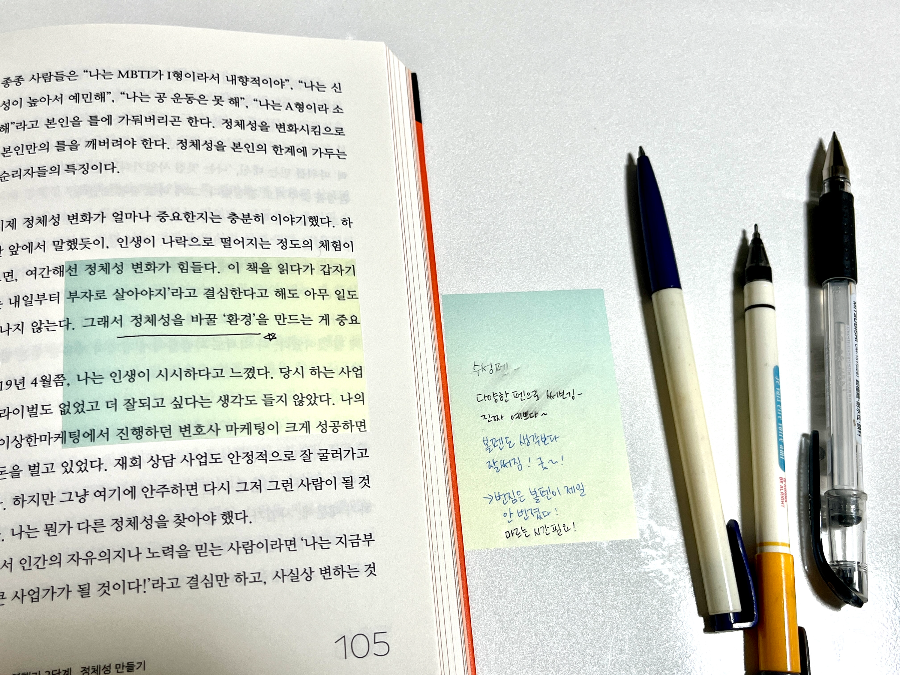 종종 사람들은 “나는 MBTI가 I형이라서 내향적이야”, “나는 신
성이 높아서 예민해”, “나는 공 운동은 못 해”, “나는 A형이라 소
해”라고 본인을 틀에 가둬버리곤 한다. 정체성을 변화시킴으로
본인만의 틀을 깨버려야 한다. 정체성을 본인의 한계에 가두는
순리자들의 특징이다.
제 정체성 변화가 얼마나 중요한지는 충분히 이야기했다. 하
앞에서 말했듯이, 인생이 나락으로 떨어지는 정도의 체험이
면, 여간해선 정체성 변화가 힘들다. 이 책을 읽다가 갑자기
내일부터 부자로 살아야지’라고 결심한다고 해도 아무 일도
나지 않는다. 그래서 정체성을 바꿀 ‘환경’을 만드는 게 중요
19년 4월쯤, 나는 인생이 시시하다고 느꼈다. 당시 하는 사업
라이벌도 없었고 더 잘되고 싶다는 생각도 들지 않았다. 나의
이상한마케팅에서 진행하던 변호사 마케팅이 크게 성공하면
돈을 벌고 있었다. 재회 상담 사업도 안정적으로 잘 굴러가고
하지만 그냥 여기에 안주하면 다시 그저 그런 사람이 될 것
나는 뭔가 다른 정체성을 찾아야 했다.
서 인간의 자유의지나 노력을 믿는 사람이라면 ‘나는 지금부
큰 사업가가 될 것이다!’라고 결심만 하고, 사실상 변하는 것
105
2단계 정체성 만들기
수성펜
다양한 펜으로 써보긴~
진짜 예쁘다~
볼펜도 생각보다
잘써짐! 굿~!
→번짐은 볼펜이 제일
안 번졌다!
마르는 시간 필요!